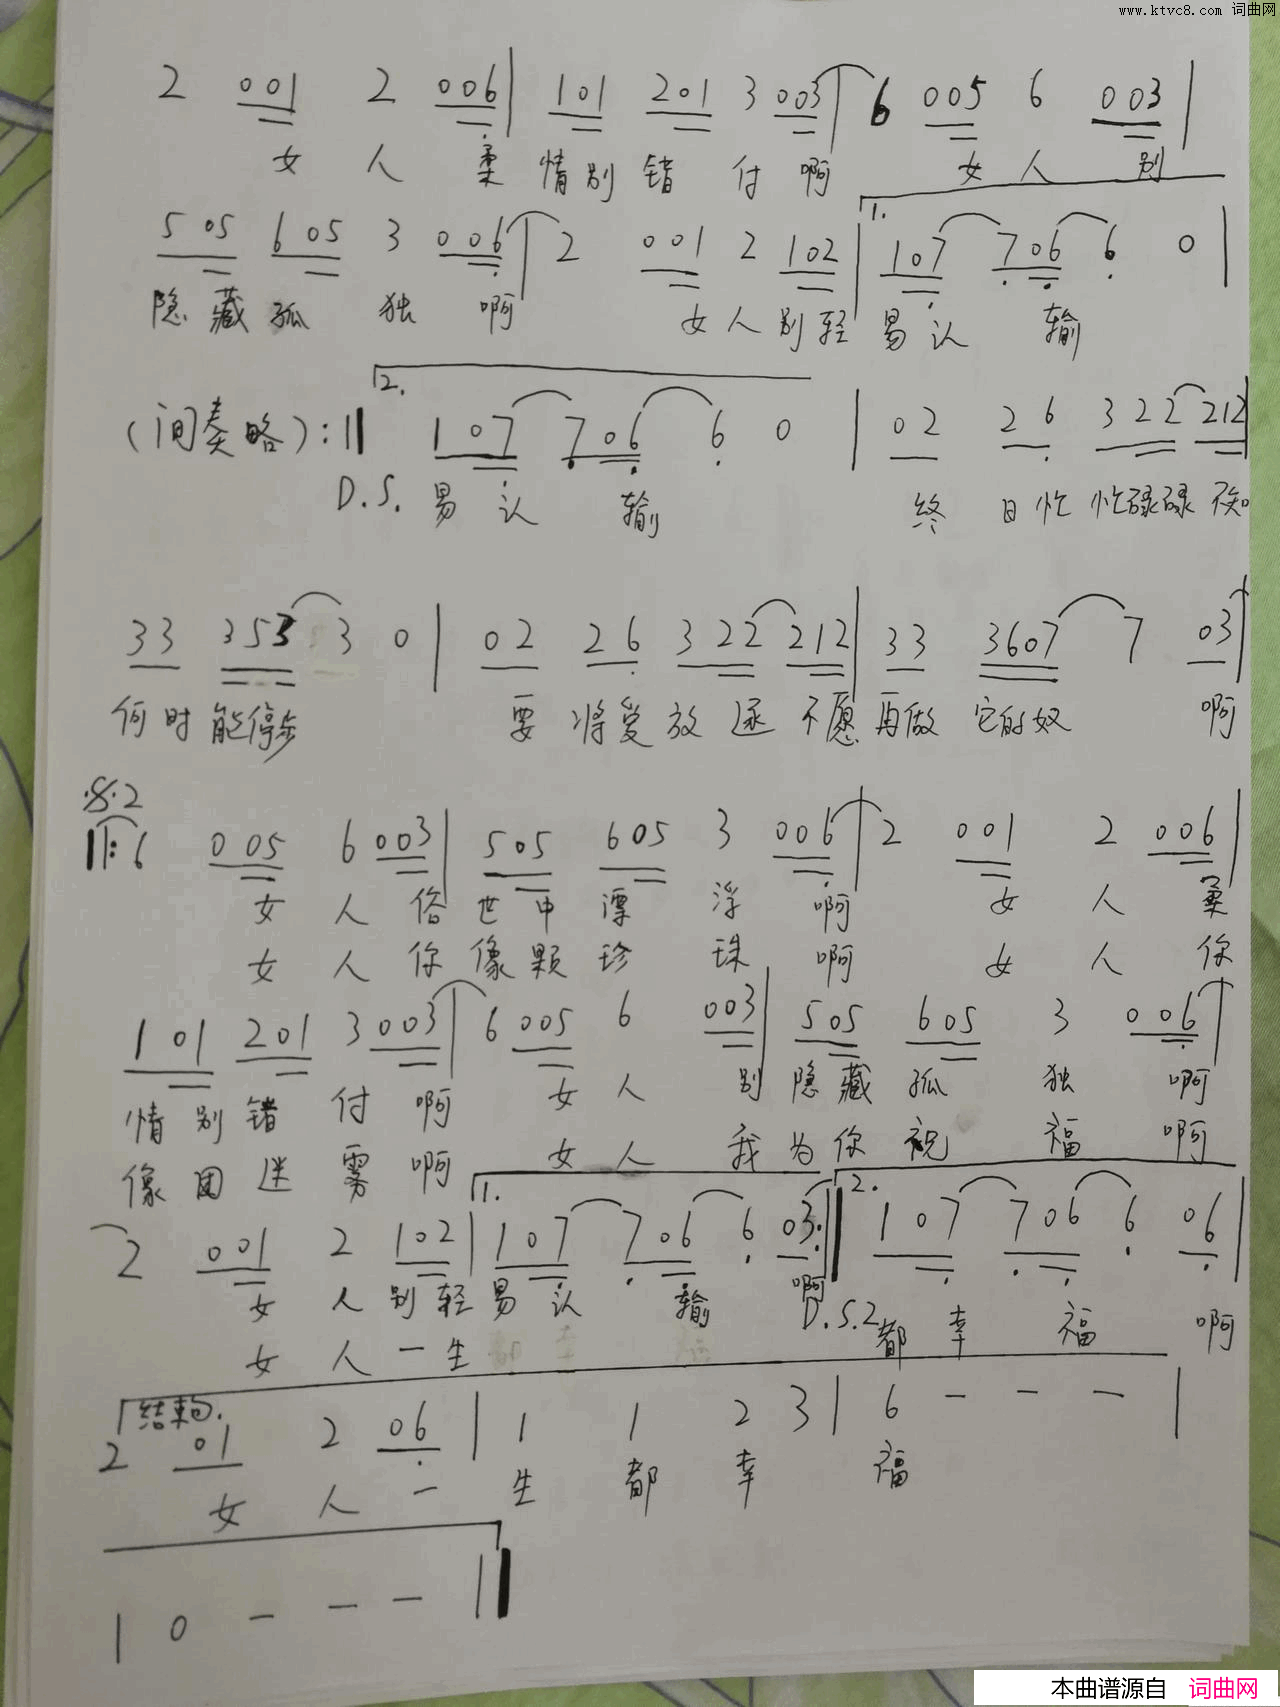 www.ktvc8.com 词曲网
2 001 2 006 | 101 201 3 003 | 6 005 6 003 |
女 人 柔 情 别 错 付 啊 女 人 别
1.
5 05 605 3 006 | 2 001 2 102 | 107 706 6 0 |
隐 藏 孤 独 啊 女 人 别 轻 易 认 输
2.
(间奏略):|| 107 706 6 0 | 02 26 322 212 |
D.S. 易 认 输 终 日 忙 忙 碌 碌 不知
33 353 3 0 | 02 26 322 212 | 33 3607 7 03 |
何 时 能 停 步 要 将 爱 放 逐 不 愿 再 做 它 的 奴 啊
.S.2
||: 6 005 6 003 | 505 605 3 006 | 2 001 2 006 |
女 人 俗 世 中 漂 浮 啊 女 人 柔
女 人 你 像 颗 珍 珠 啊 女 人 你
101 201 3 003 | 6 005 6 003 | 505 605 3 006 |
情 别 错 付 啊 女 人 别 隐 藏 孤 独 啊
像 团 迷 雾 啊 女 人 我 为 你 祝 福 啊
1. 2.
2 001 2 102 | 107 706 6 03 :|| 107 706 6 06 |
女 人 别 轻 易 认 输 啊 D.S.2 都 幸 福 啊
女 人 一 生
结束.
2 01 2 06 | 1 1 2 3 | 6 — — — |
女 人 一 生 都 幸 福
| 0 — — — ||
本曲谱源自 词曲网